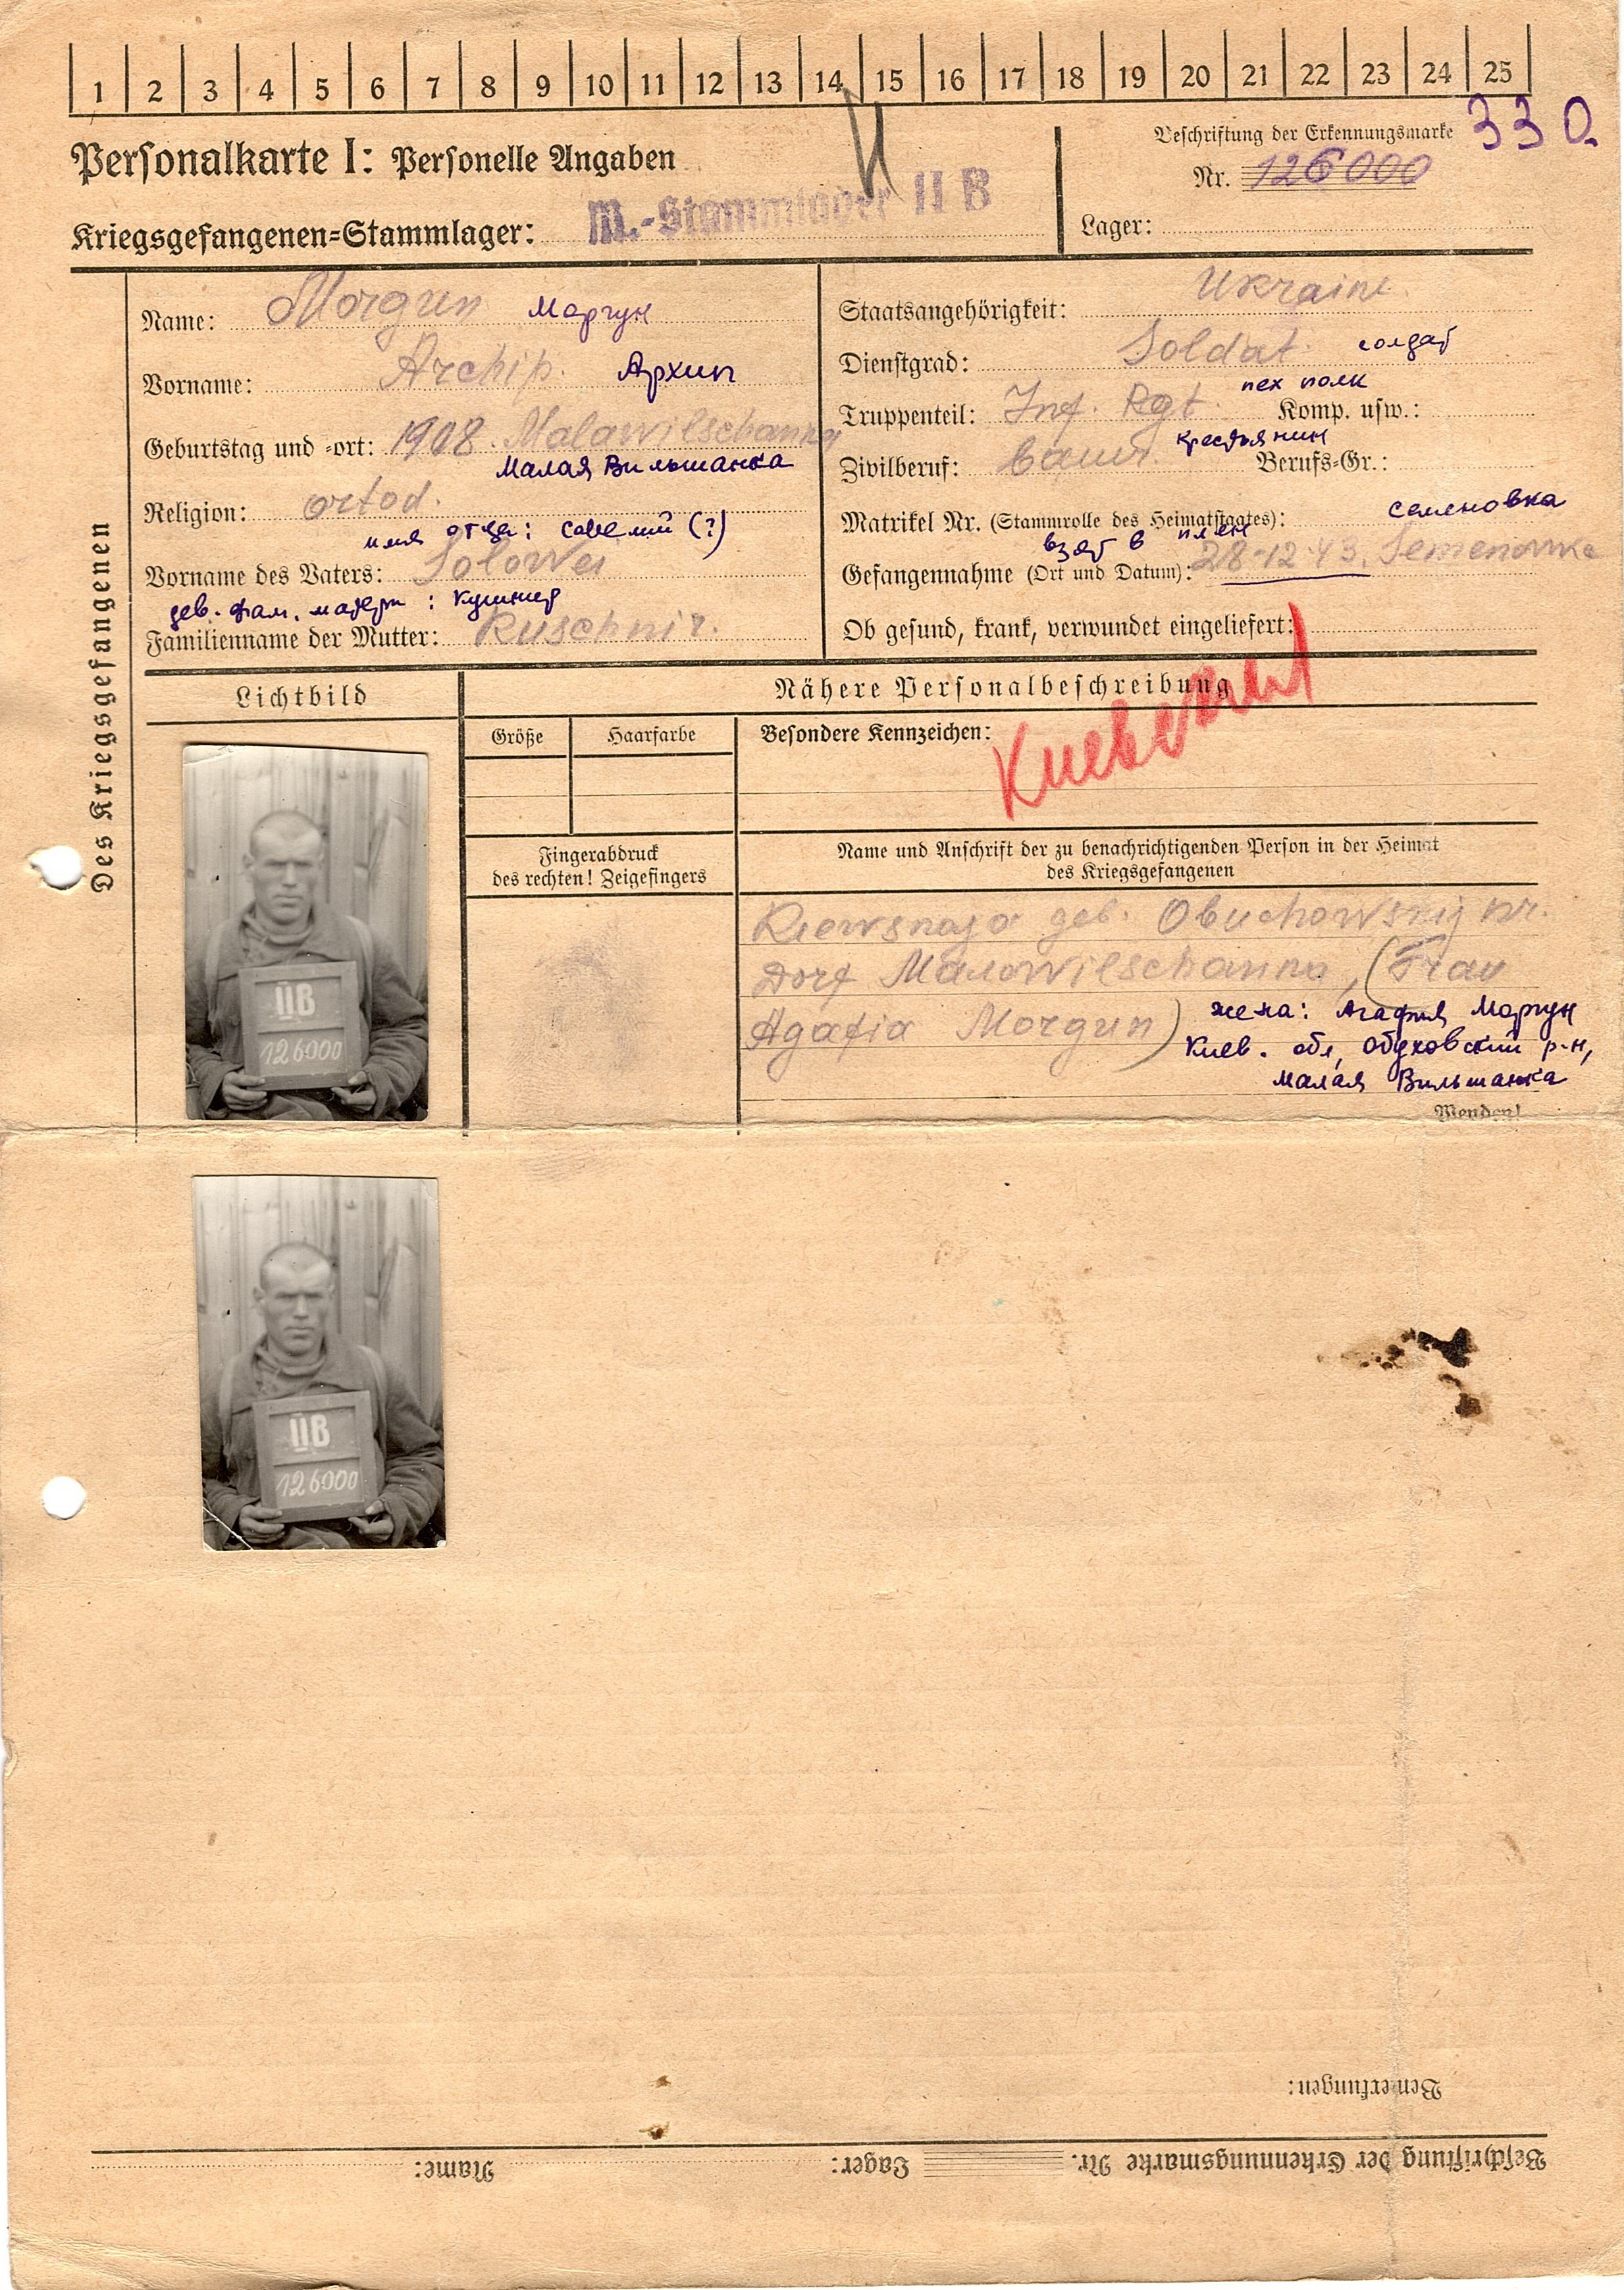 1 2 3 4 5 6 7 8 9 10 11 12 13 14 15 16 17 18 19 20 21 22 23 24 25
Personalkarte I: Personelle Angaben
Beschriftung der Erkennungsmarke 330.
Nr. 126000
Kriegsgefangenen-Stammlager: M.-Stammlager II B
Lager:
Des Kriegsgefangenen
Name: Morgun Моргун
Vorname: Archip. Архип
Geburtstag und -ort: 1908. Malawilschanka
Малая Вильшанка
Religion: ortod.
имя отца: (?)
Vorname des Vaters: Solowei
дев. фам. матери: Кушнир
Familienname der Mutter: Kuschnir.
Staatsangehörigkeit: Ukraine
Dienstgrad: Soldat. солдат
пех полк
Truppenteil: Inf. Rgt. Komp. usw.:
крестьянин
Zivilberuf: Bauer. Berufs-Gr.:
семеновка
Matrikel Nr. (Stammrolle des Heimatstaates):
взят в плен
Gefangennahme (Ort und Datum): 28-12-43. Semenowka
Ob gesund, krank, verwundet eingeliefert:
Lichtbild
Nähere Personalbeschreibung
Größe
Haarfarbe
Besondere Kennzeichen:
Fingerabdruck
des rechten! Zeigefingers
Name und Anschrift der zu benachrichtigenden Person in der Heimat
des Kriegsgefangenen
Kiewskaja geb. Obuchowskij
Dorf Malowilschanka, (Frau
Agafia Morgun)
жена: Агафия Моргун
Киев. обл, Обуховский р-н,
Малая Вильшанка
Wenden!
IIB
126000
IIB
126000
Bemerkungen:
Beschriftung der Erkennungsmarke Nr. Lager: Name: